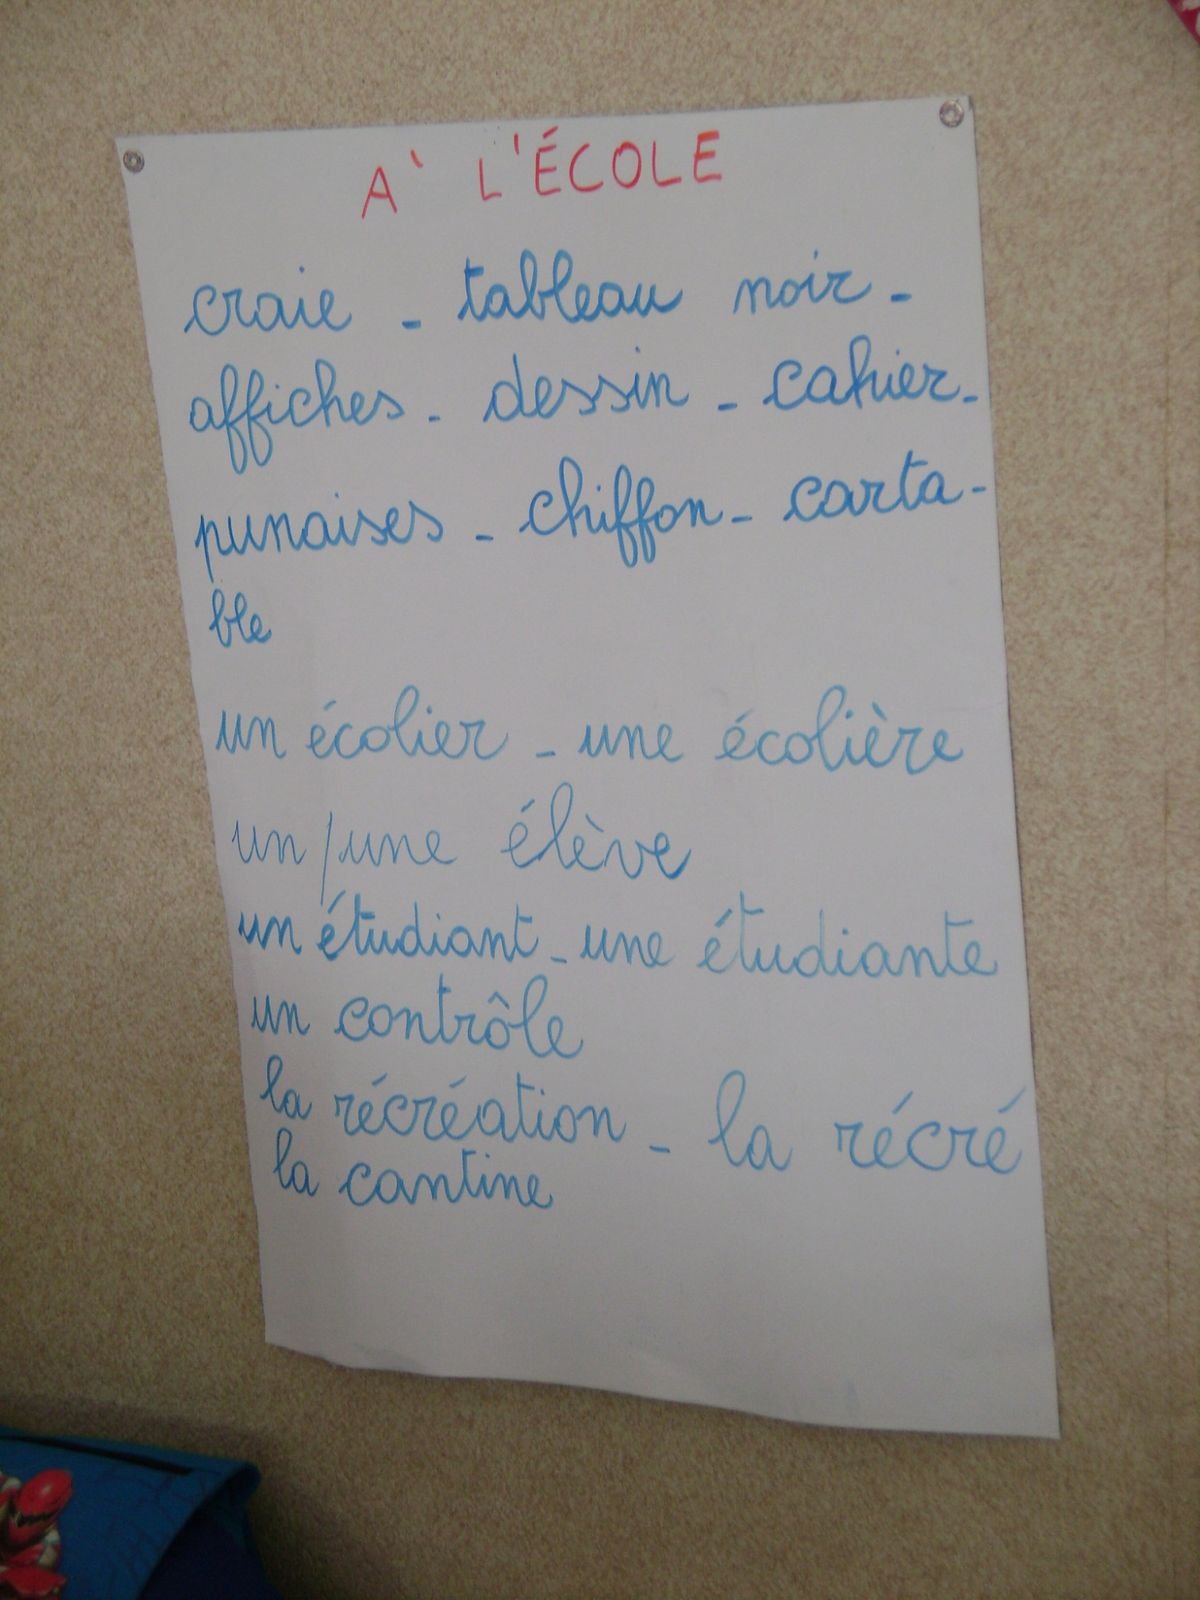 A` L'ÉCOLE
craie - tableau noir -
affiches - dessin - cahier -
punaises - chiffon - carta-
ble
un écolier - une écolière
un/une élève
un étudiant - une étudiante
un contrôle
la récréation - la récré
la cantine